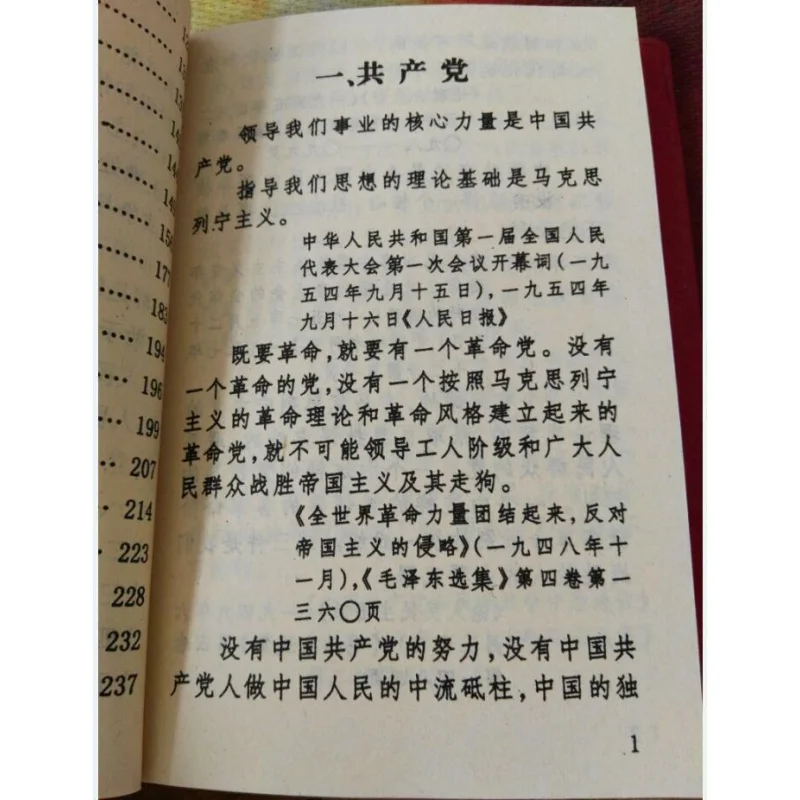 156
177
183
194
196
199
207
214
223
228
232
237
一、共产党
领导我们事业的核心力量是中国共
产党。
指导我们思想的理论基础是马克思
列宁主义。
中华人民共和国第一届全国人民
代表大会第一次会议开幕词(一九
五四年九月十五日),一九五四年
九月十六日《人民日报》
既要革命,就要有一个革命党。没有
一个革命的党,没有一个按照马克思列宁
主义的革命理论和革命风格建立起来的
革命党,就不可能领导工人阶级和广大人
民群众战胜帝国主义及其走狗。
《全世界革命力量团结起来,反对
帝国主义的侵略》(一九四八年十
一月),《毛泽东选集》第四卷第一
三六〇页
没有中国共产党的努力,没有中国共
产党人做中国人民的中流砥柱,中国的独
1